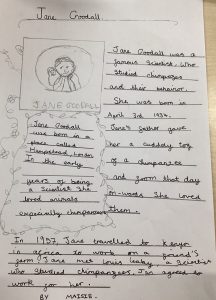 Jane Goodall
JANE GOODALL
Jane Goodall
was born in a
place called
Hampstead, London
In the early
years of being
a Scientist She
loved animals
especially chimpanzees
Jane Goodall was a
famous Scientist. Who
Studied chimpanzees
and their behavior.
She was born in
April 3rd 1934.
Jane's father gave
her a cuddly toy
of a chimpanzee
and from that day
on-wards She loved
them.
In 1957, Jane travelled to Kenya
in africa to work on a friend's
farm, Jane met Louis Leaky, a Scientist
who studied chimpanzees. Jan agreed to
work for her.
BY MAISIE.